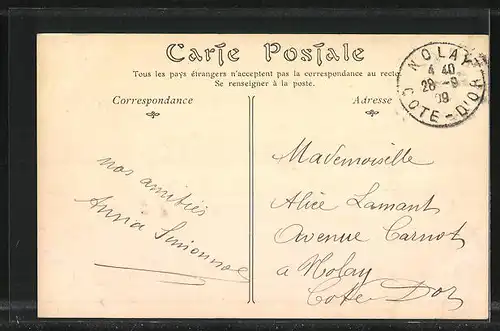 Carte Postale
Tous les pays étrangers n'acceptent pas la correspondance au recto
Se renseigner à la poste.
Correspondance
Adresse
NOLAY
4 40
28 -9
09
COTE-D'OR
nos amitiés
Anna
Mademoiselle
Alice Lamant
Avenue Carnot
a Nolay
Cote D'or